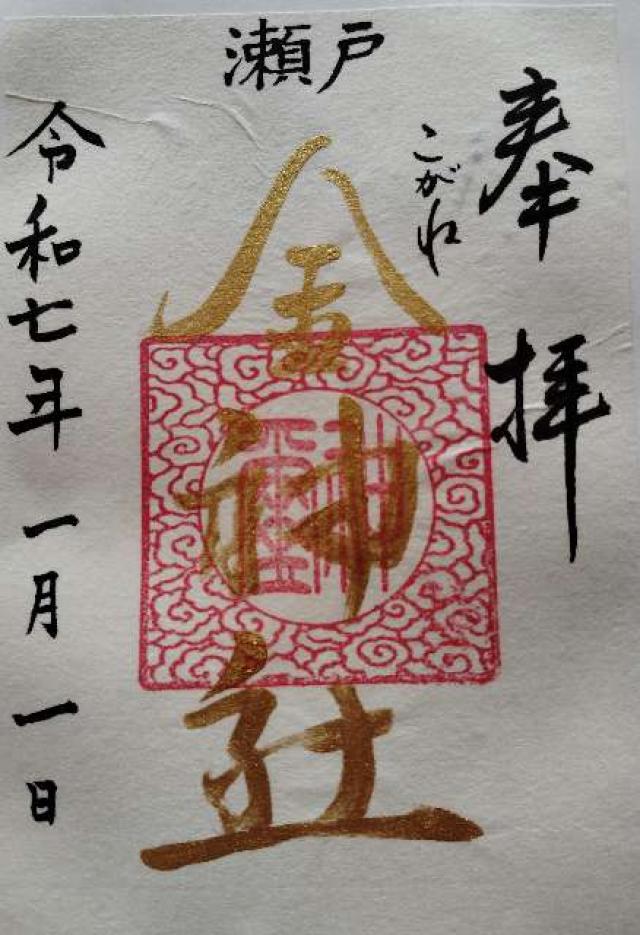 奉拝
こがね
瀬戸
金神社
令和七年一月一日